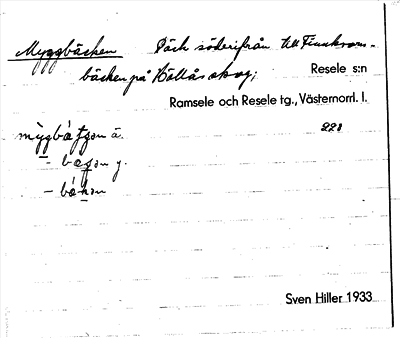 Myggbäcken Bäck söderifrån till Finnkroms-
bäcken på Höllås skog; Resele s:n
Ramsele och Resele tg., Västernorrl. l.
223
- bákɛn
Sven Hiller 1933